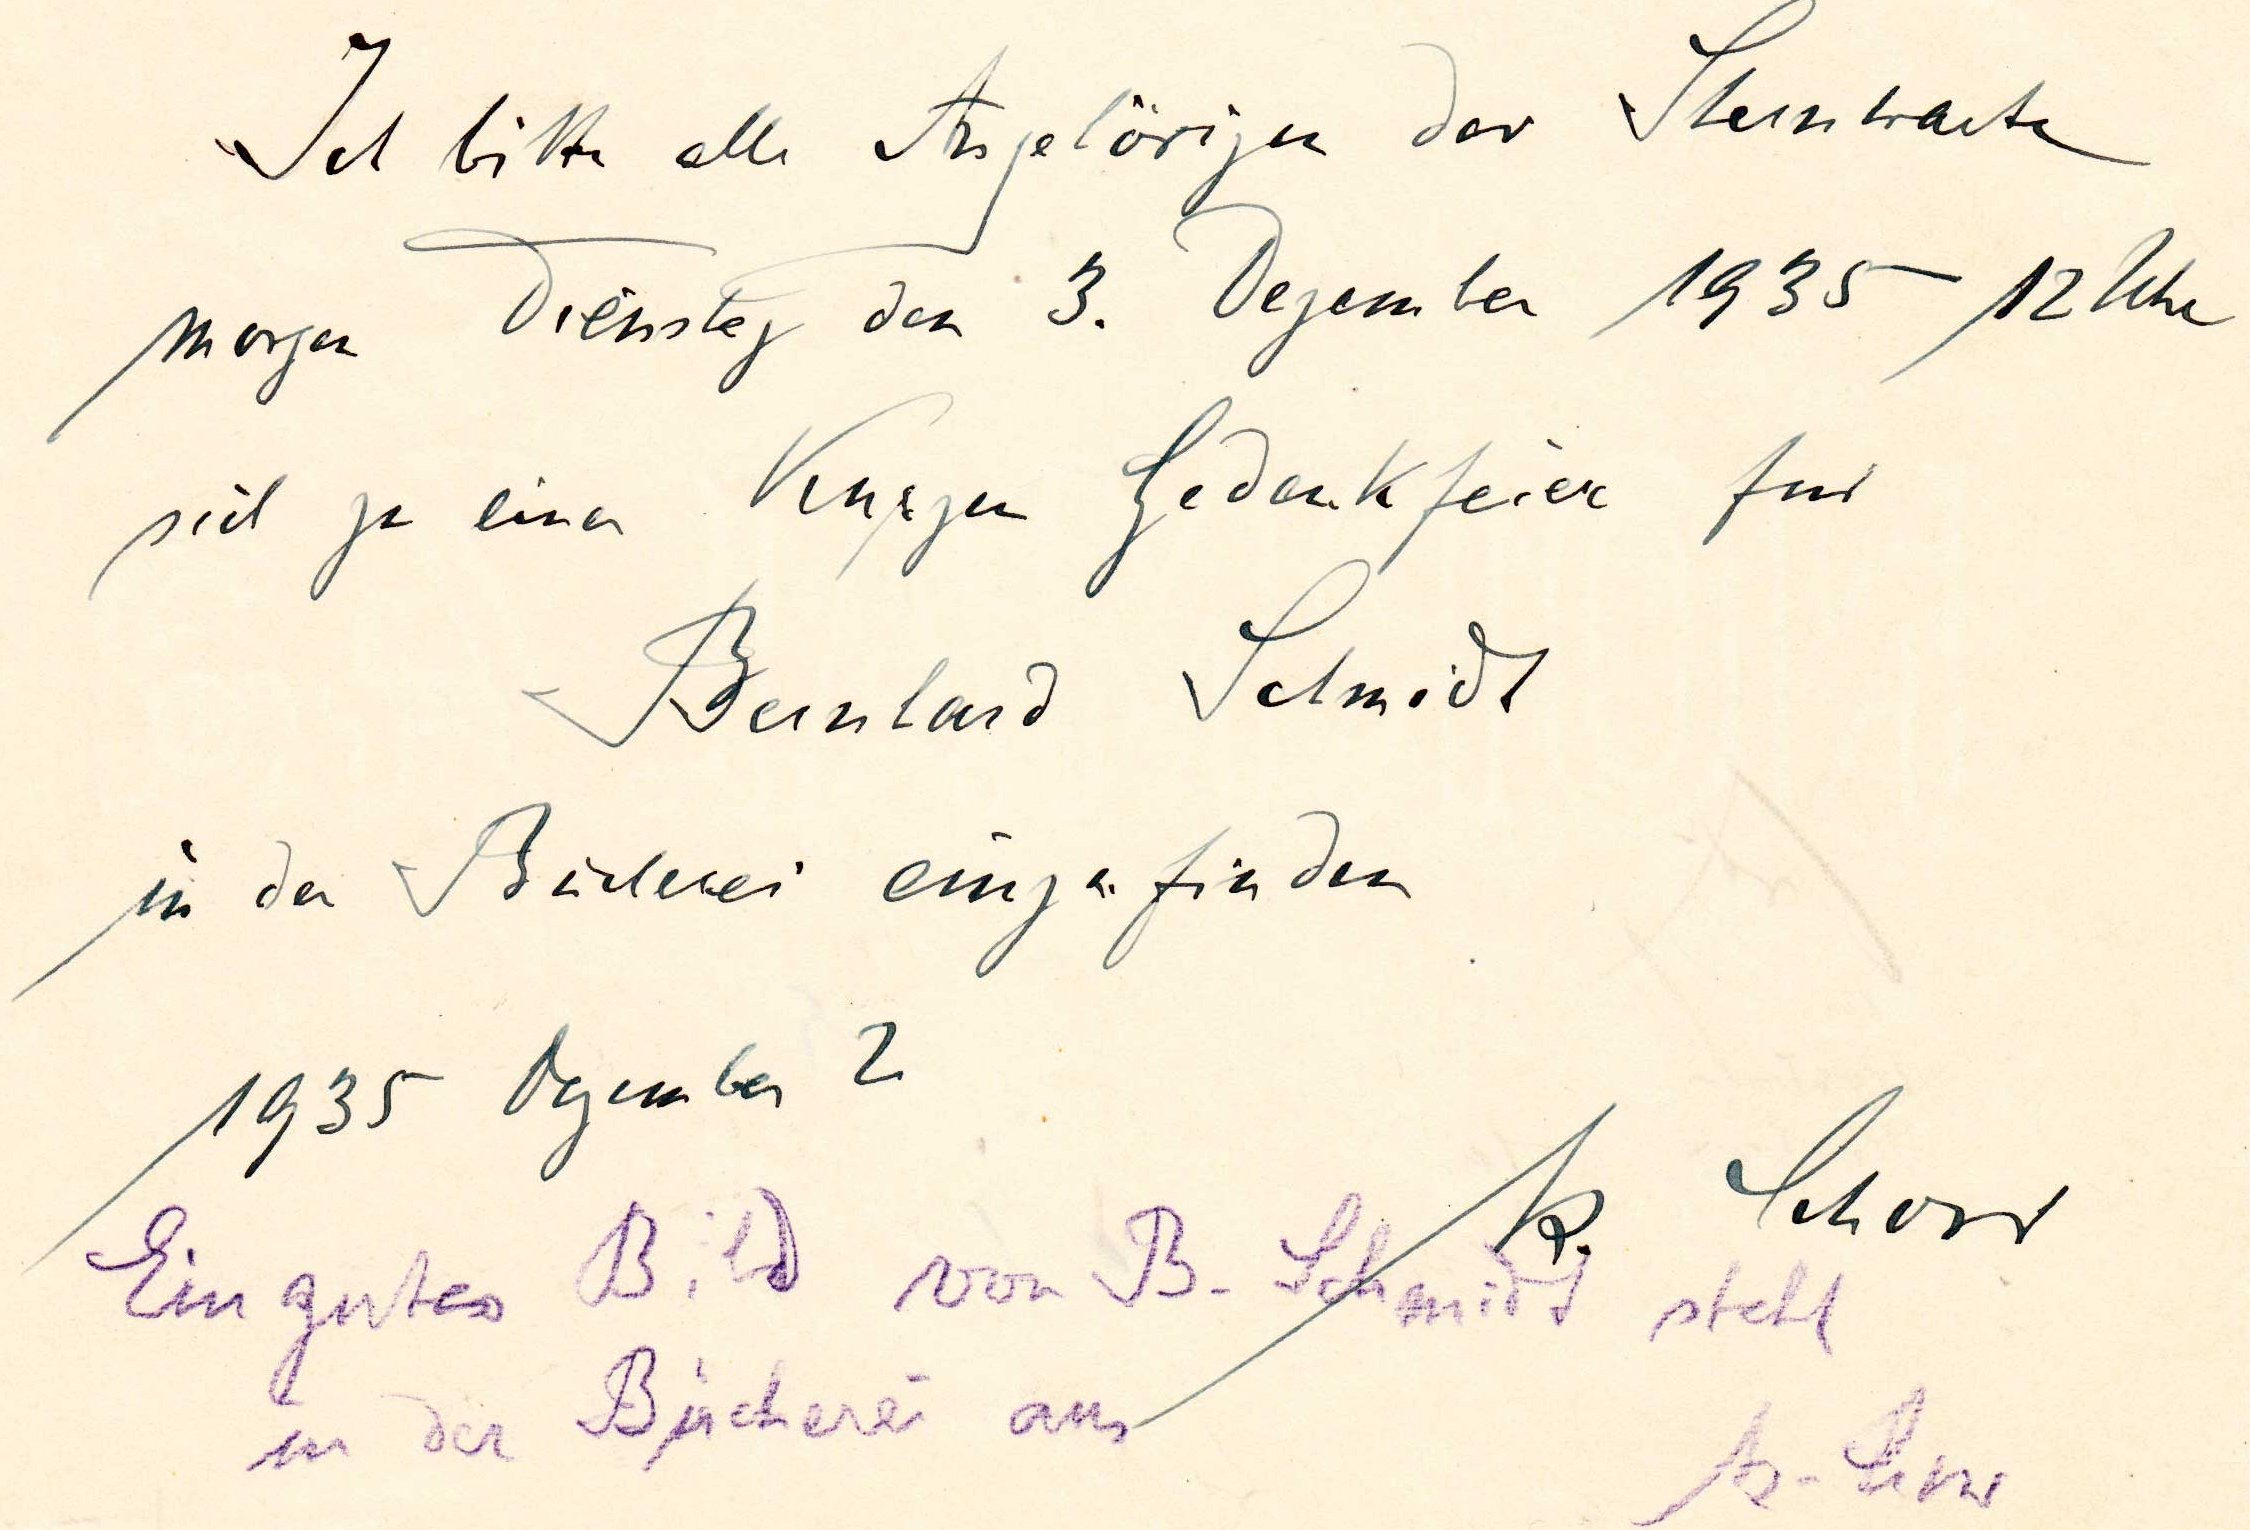 Ich bitte alle Angehörigen der Sternwarte
morgen Dienstag den 3. Dezember 1935 12 Uhr
sich zu einer kurzen Gedenkfeier für
Bernhard Schmidt
in der Bücherei einzufinden
1935 Dezember 2
R. Schorr
Ein gutes Bild von B. Schmidt steht
in der Bücherei aus
R. Schorr